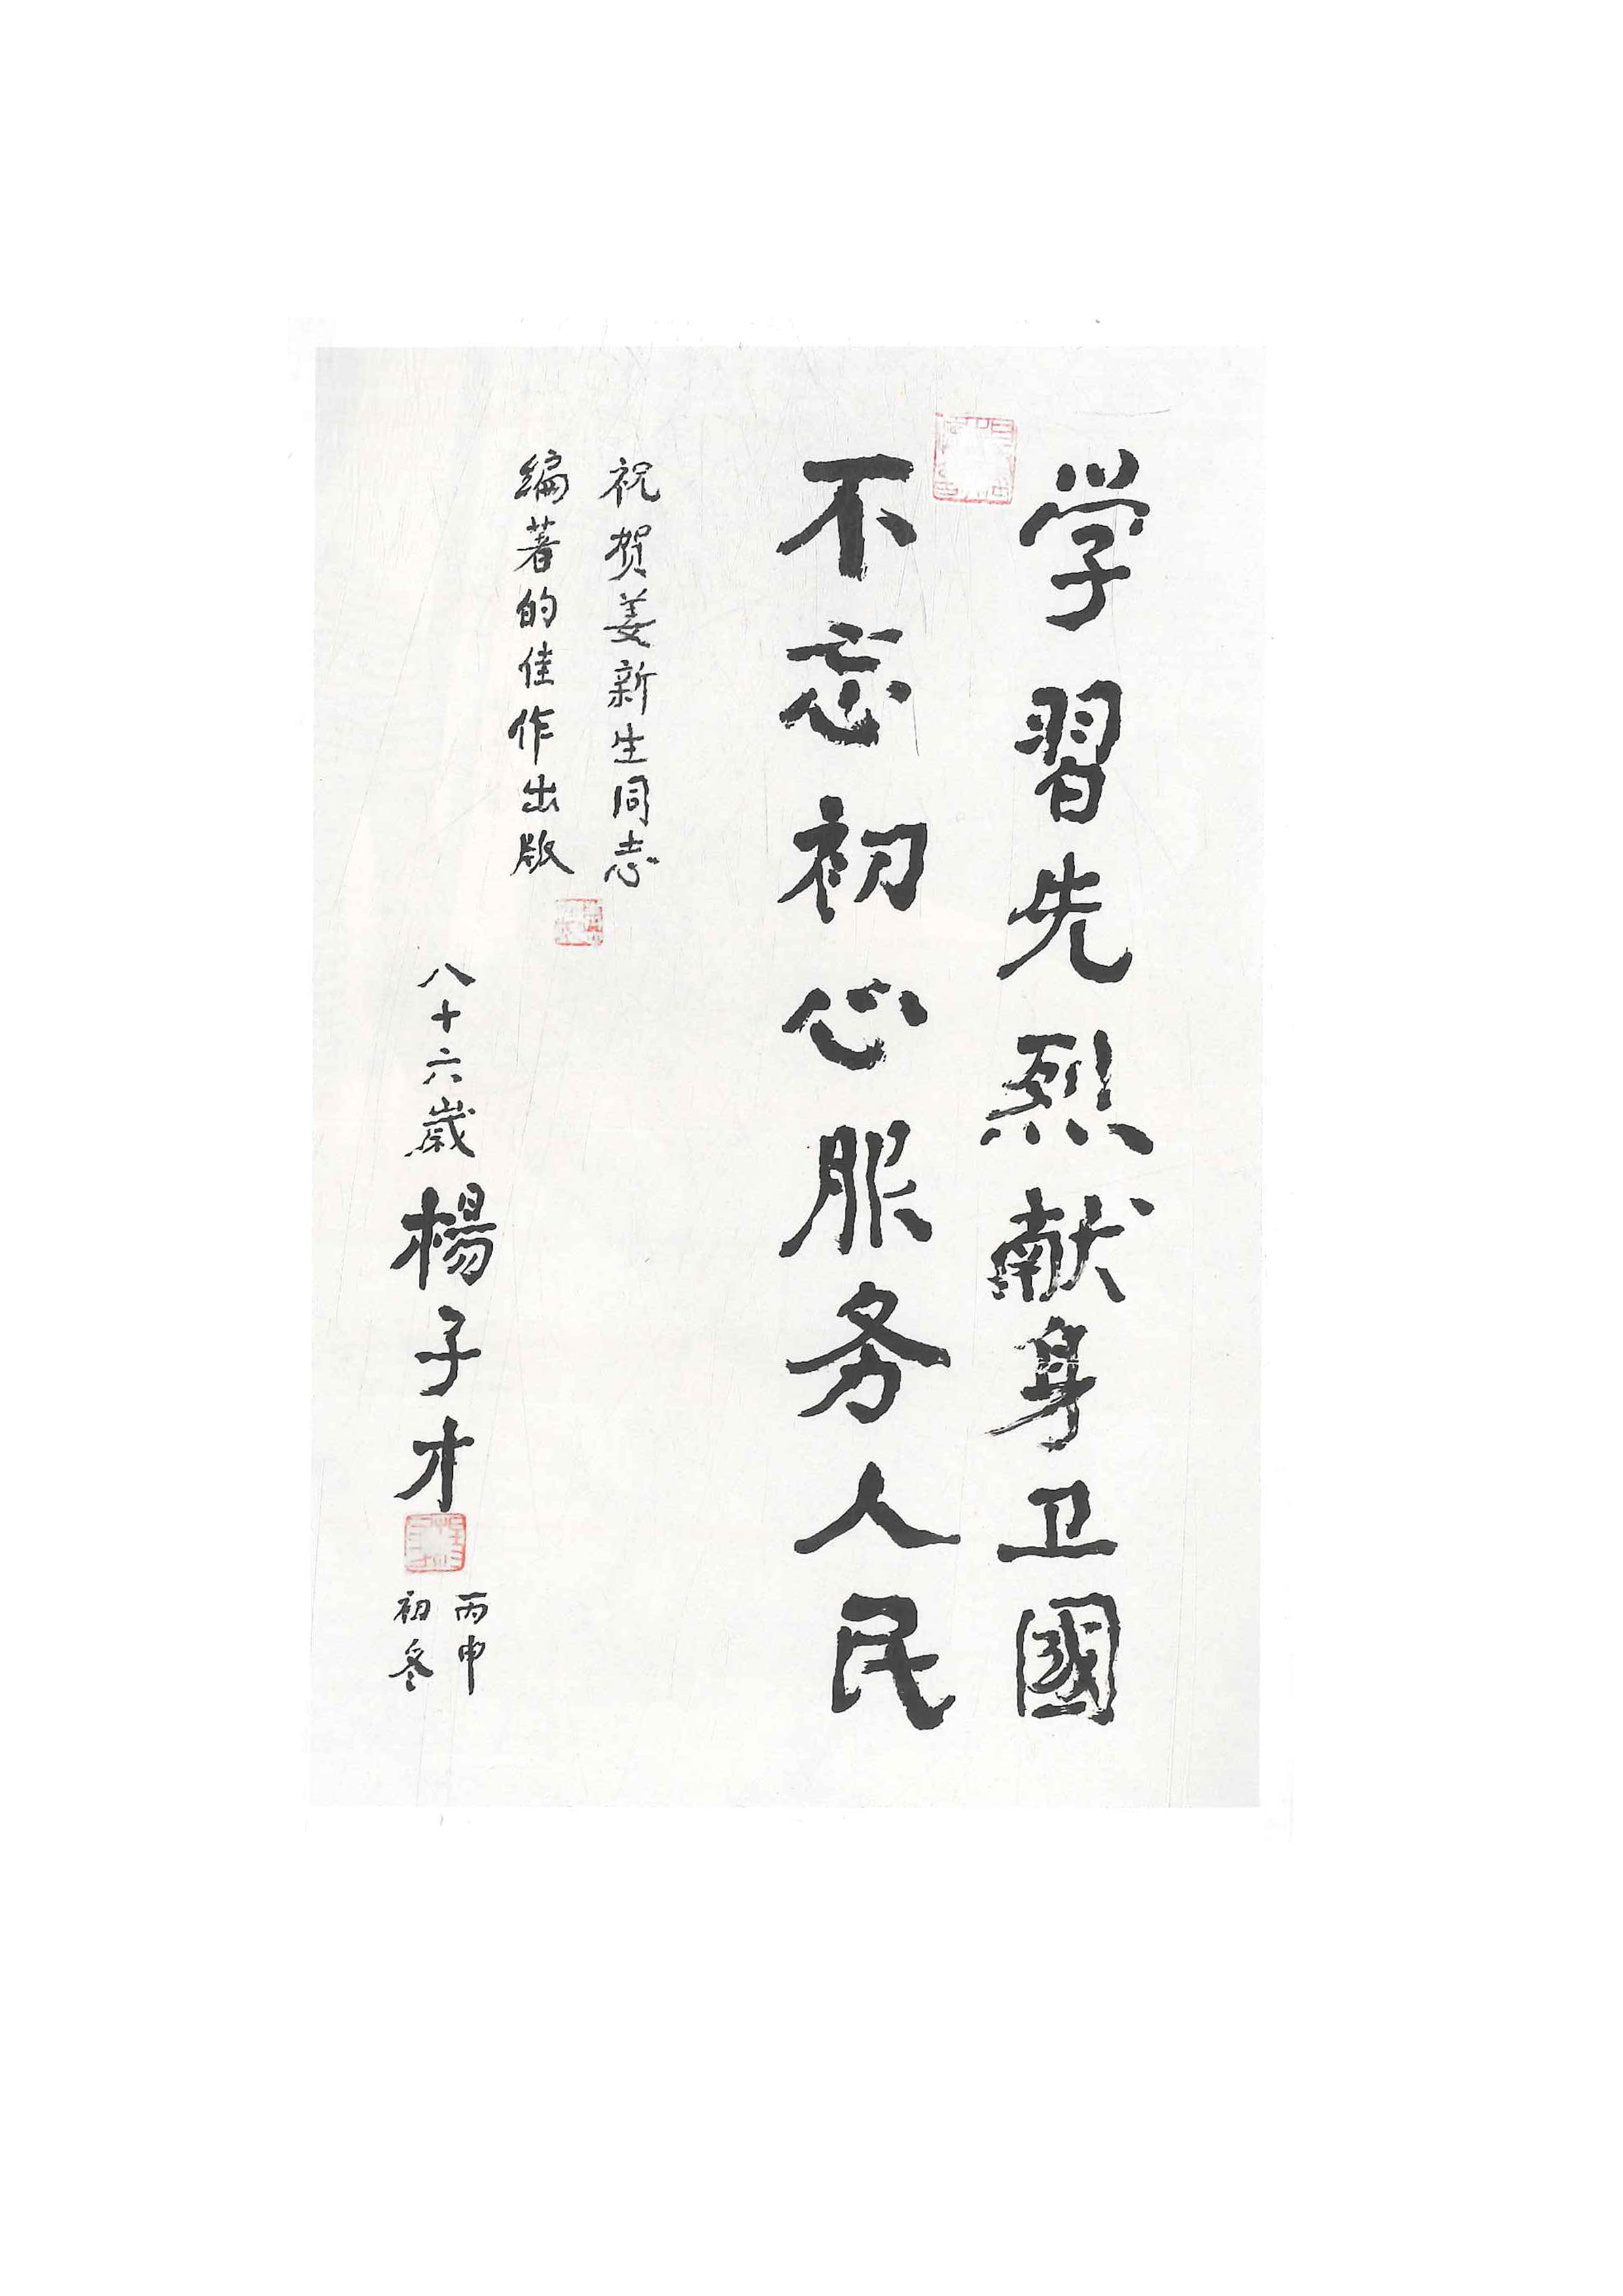 学習先烈献身卫國
不忘初心服务人民
祝贺姜新生同志
编著的佳作出版
八十六歲楊子才
丙申
初冬